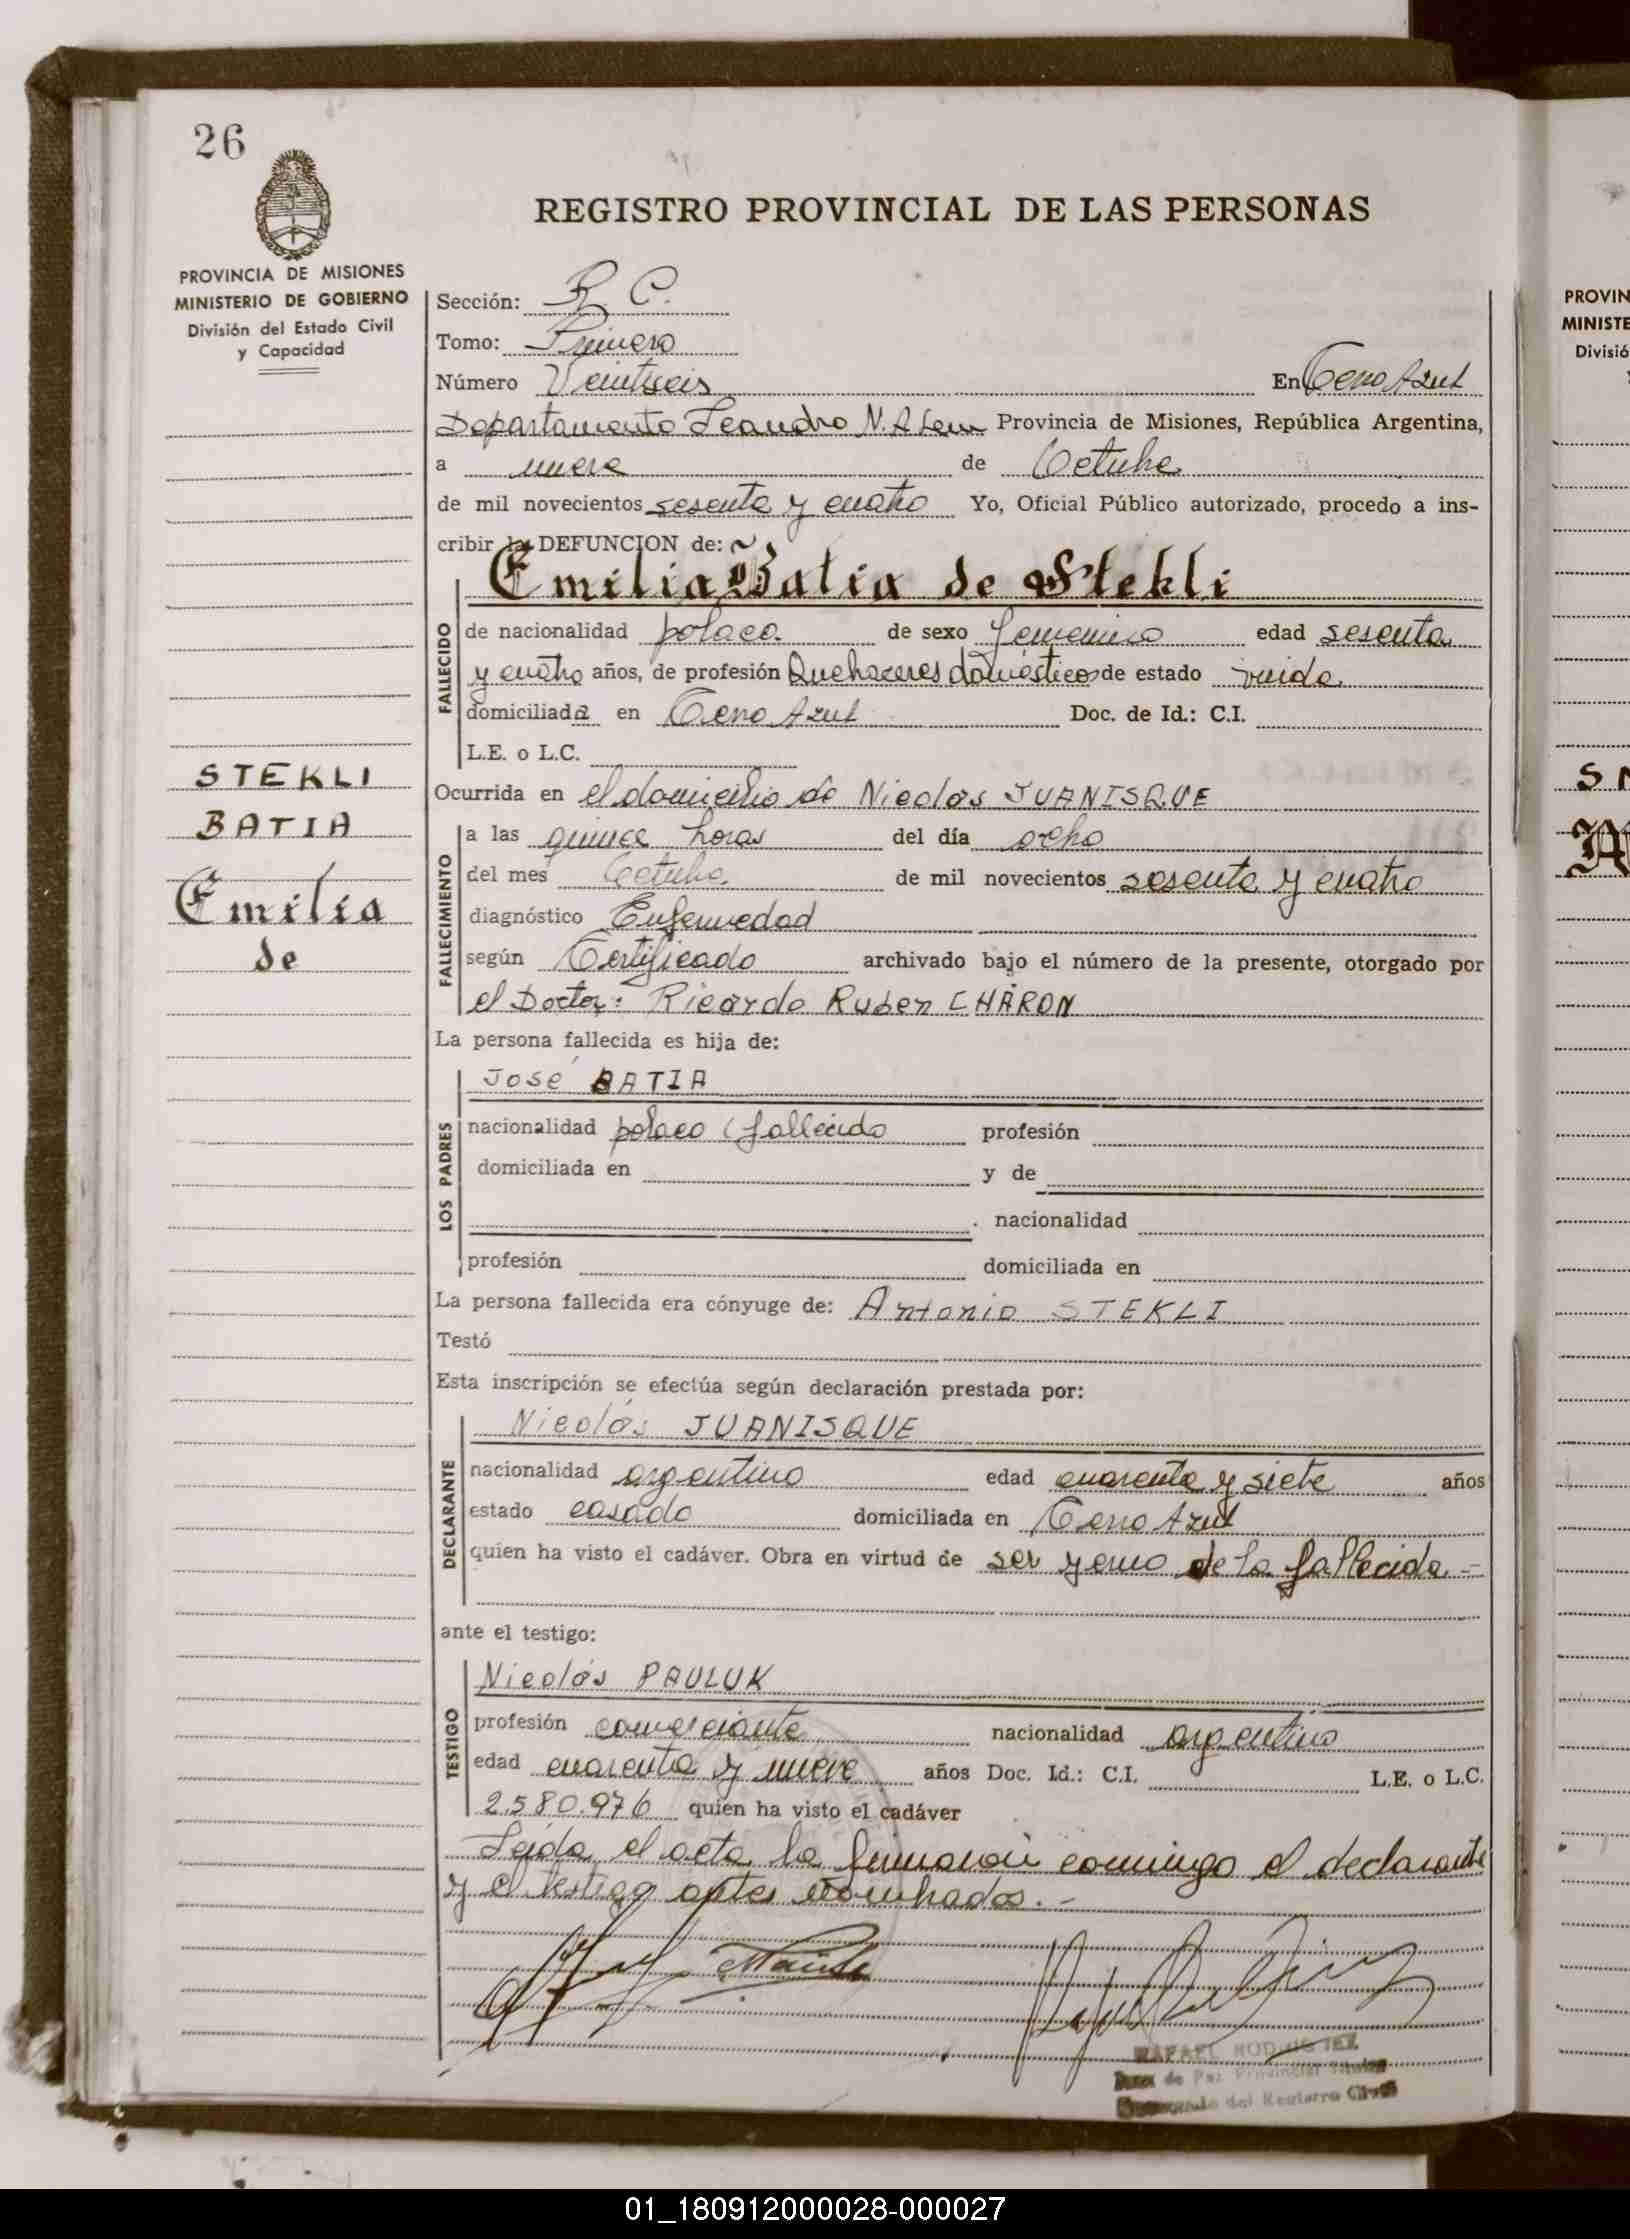 26
REGISTRO PROVINCIAL DE LAS PERSONAS
PROVINCIA DE MISIONES
MINISTERIO DE GOBIERNO
División del Estado Civil
y Capacidad
Sección: R. C.
Tomo: Primero
Número Veintiseis En Cerro Azul
Departamento Leandro N. Alem Provincia de Misiones, República Argentina,
a nueve de Octubre
de mil novecientos sesenta y cuatro Yo, Oficial Público autorizado, procedo a ins-
cribir la DEFUNCION de:
Emilia Batia de Stekli
FALLECIDO
de nacionalidad polaca de sexo femenino edad sesenta
y cuatro años, de profesión Quehaceres domésticos de estado viuda
domiciliada en Cerro Azul Doc. de Id.: C.I.
L.E. o L.C.
STEKLI
BATIA
Emilia
de
Ocurrida en el domicilio de Nicolás JUANISQUE
FALLECIMIENTO
a las quince horas del día ocho
del mes Octubre de mil novecientos sesenta y cuatro
diagnóstico Enfermedad
según Certificado archivado bajo el número de la presente, otorgado por
el Doctor: Ricardo Ruben CHARON
La persona fallecida es hija de:
LOS PADRES
José BATIA
nacionalidad polaco (fallecido profesión
domiciliada en y de
nacionalidad
profesión domiciliada en
La persona fallecida era cónyuge de: Antonio STEKLI
Testó
Esta inscripción se efectúa según declaración prestada por:
DECLARANTE
Nicolás JUANISQUE
nacionalidad argentino edad cuarenta y siete años
estado casado domiciliada en Cerro Azul
quien ha visto el cadáver. Obra en virtud de ser yerno de la fallecida.-
ante el testigo:
TESTIGO
Nicolás PAULUK
profesión comerciante nacionalidad argentino
edad cuarenta y nueve años Doc. Id.: C.I. L.E. o L.C.
2.580.976 quien ha visto el cadáver
Leída el acta, la firmaron conmingo el declarante
y el testigo antes nombrados.-
RAFAEL RODRIGUEZ
Juez de Paz Provincial Titular
Encargado del Registro Civil
PROVIN
MINISTE
Divisió
01_180912000028-000027